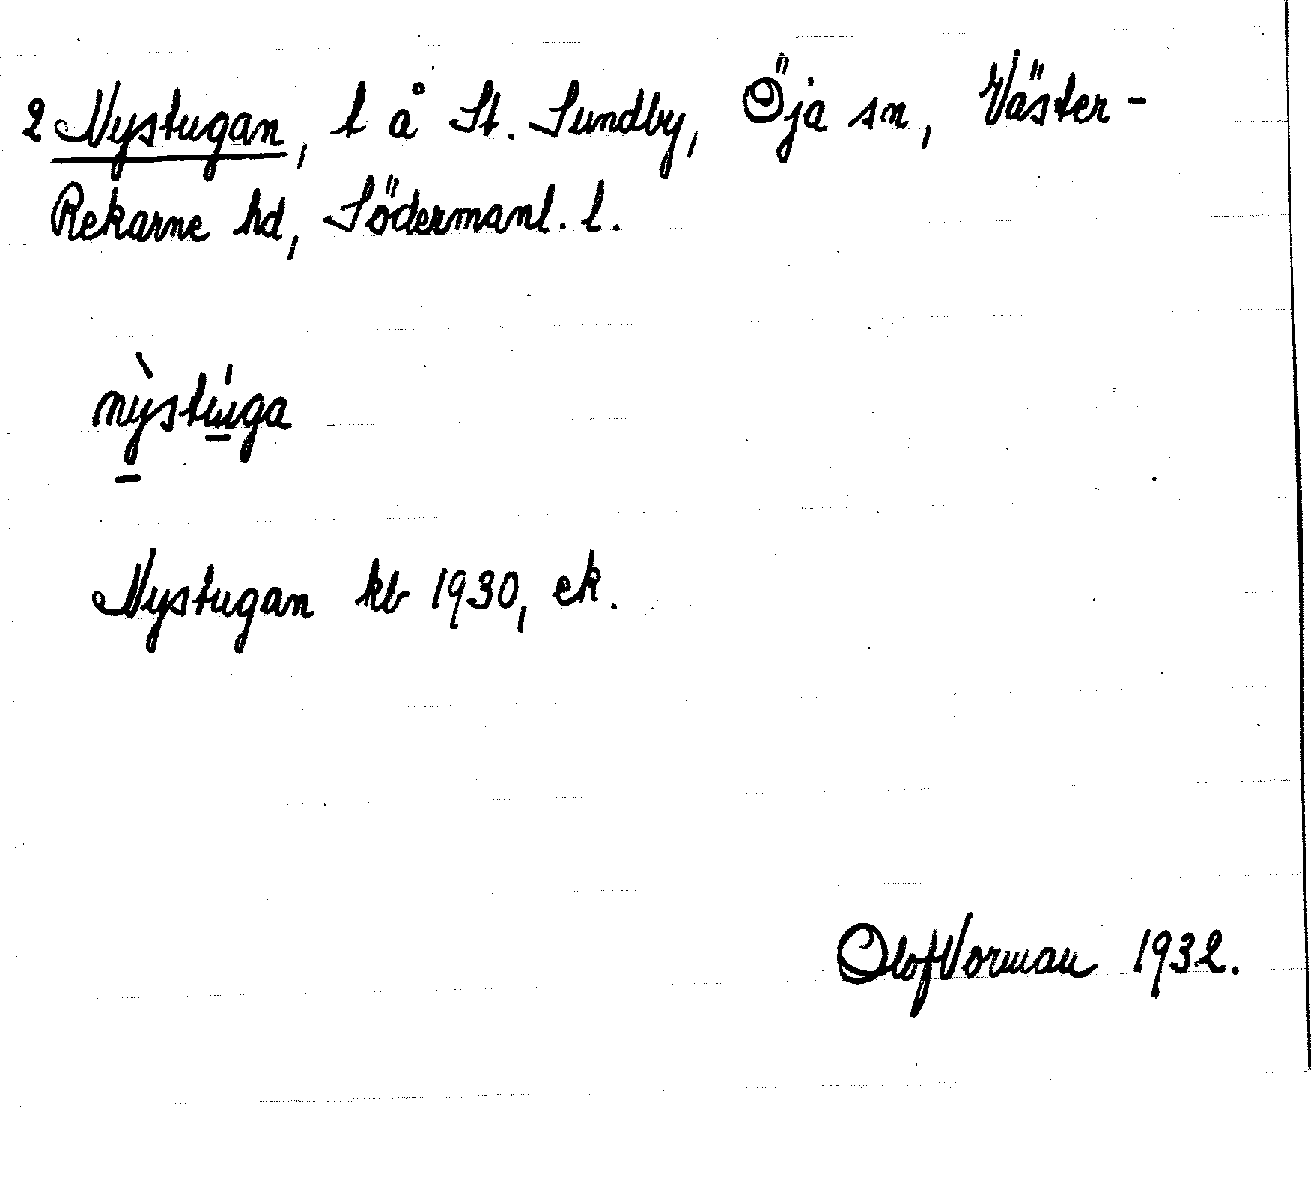 2 Nystugan, t å St. Sundby, Öja sn, Väster-
Rekarne hd, Södermanl. l.
nỳstúga
Nystugan kb 1930, ek.
Olof Vorman 1932.